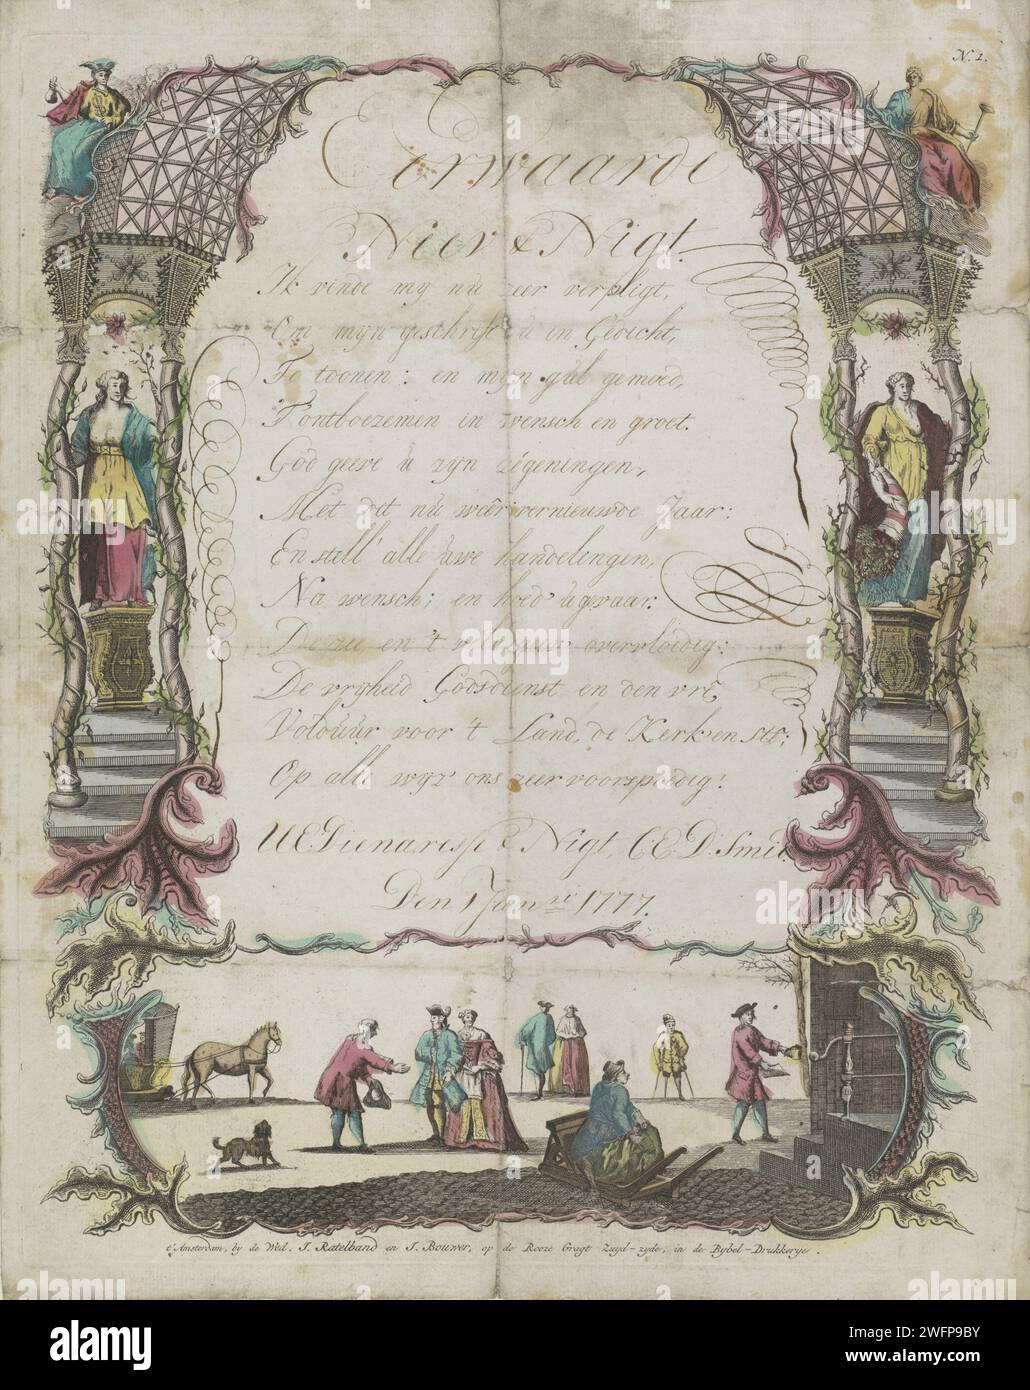 N. 2.
Eerwaarde
Neev & Nigt.
Ik vinde my nu zeer verpligt,
Om mijn geschrift u in Gedicht,
Te toonen: en mijn gul gemoed,
T'ontboezemen in wensch en groet.
God geeve u zijn zégeningen,
Met dit nu wêêr vernieuwde Jaar:
En stell' alle uwe handelingen,
Na wensch; en hoed' u gevaar.
De zee en 't overvloedig:
De vrijheid Godsdienst en den vrê,
Voorduur voor 't Land, de Kerk en steê;
Op alle wijz' ons zeer voorspoedig!
UE Dienaresse Nigt, C E D. Smit
Den 1 Janri 1777.
t'Amsterdam, by de Wed. J. Ratelband en J. Bouwer, op de Rooze Gragt Zuyd-zyde, in de Bybel-Drukkerye.
alamy
Image ID: 2WFP9BY
www.alamy.com